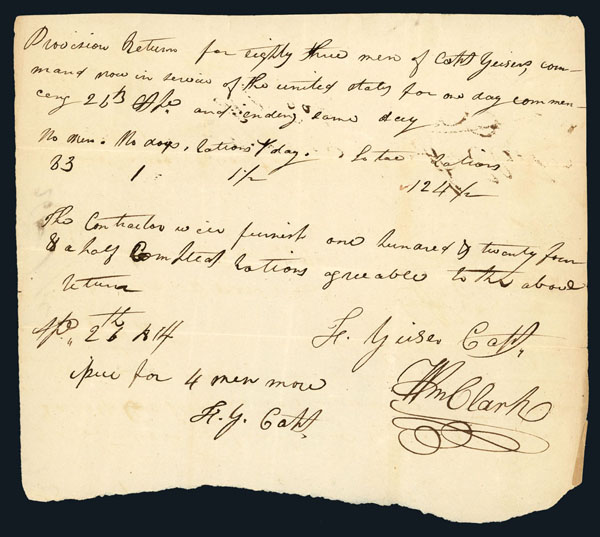 Provision Return for eighty three men of Capt Yeisers, com-
mand now in service of the united states for one day commen-
ceng 26th Ape and ending same day
No men. No days, rations ⅌ day. To tae Rations
83 1 1½ 124½
The Contractor will furnish one hundred & twenty four
& a half Compleat Rations agreable to the above
return
Ape,, 26th 1814
F. Yeiser Capt,
issue for 4 men more
WmClark
F. Y. Capt,